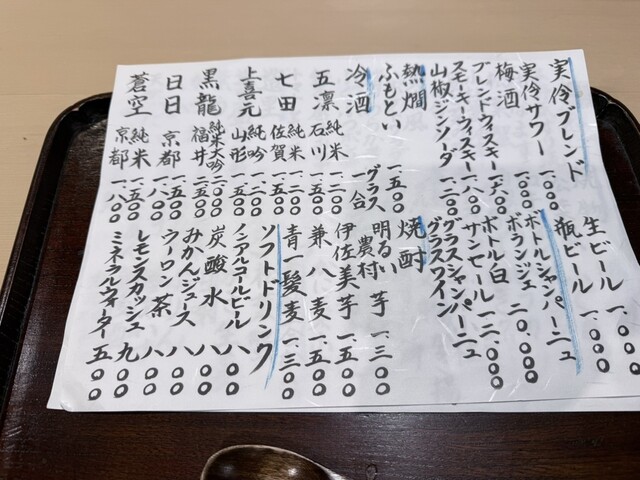 生ビール 一、〇〇〇
瓶ビール 一、〇〇〇
実伶ブレンド
実伶サワー 一、〇〇〇
梅酒 一、〇〇〇
ブレンドウィスキー 一、六〇〇
スモーキーウィスキー 一、八〇〇
山椒ジンソーダ 一、二〇〇
ボトルシャンパーニュ
ボランジェ 二〇、〇〇〇
ボトル白
サンセール 一二、〇〇〇
グラスシャンパーニュ
グラスワイン
熱燗
ふもとい 一合 一、五〇〇
冷酒 グラス 一合
五凛 純米 石川 一、二〇〇
七田 純米 佐賀 一、二〇〇
上喜元 純吟 山形 一、五〇〇
黒龍 純米大吟 福井 二、五〇〇
日日 京都 一、五〇〇
蒼空 純米 京都 一、八〇〇
焼酎
明るい農村 芋 一、三〇〇
伊佐美 芋 一、五〇〇
兼八 麦 一、五〇〇
青一髪 麦 一、三〇〇
ソフトドリンク
ノンアルコールビール 八〇〇
炭酸水 八〇〇
みかんジュース 八〇〇
ウーロン茶 八〇〇
レモンスカッシュ 九〇〇
ミネラルウォーター 五〇〇